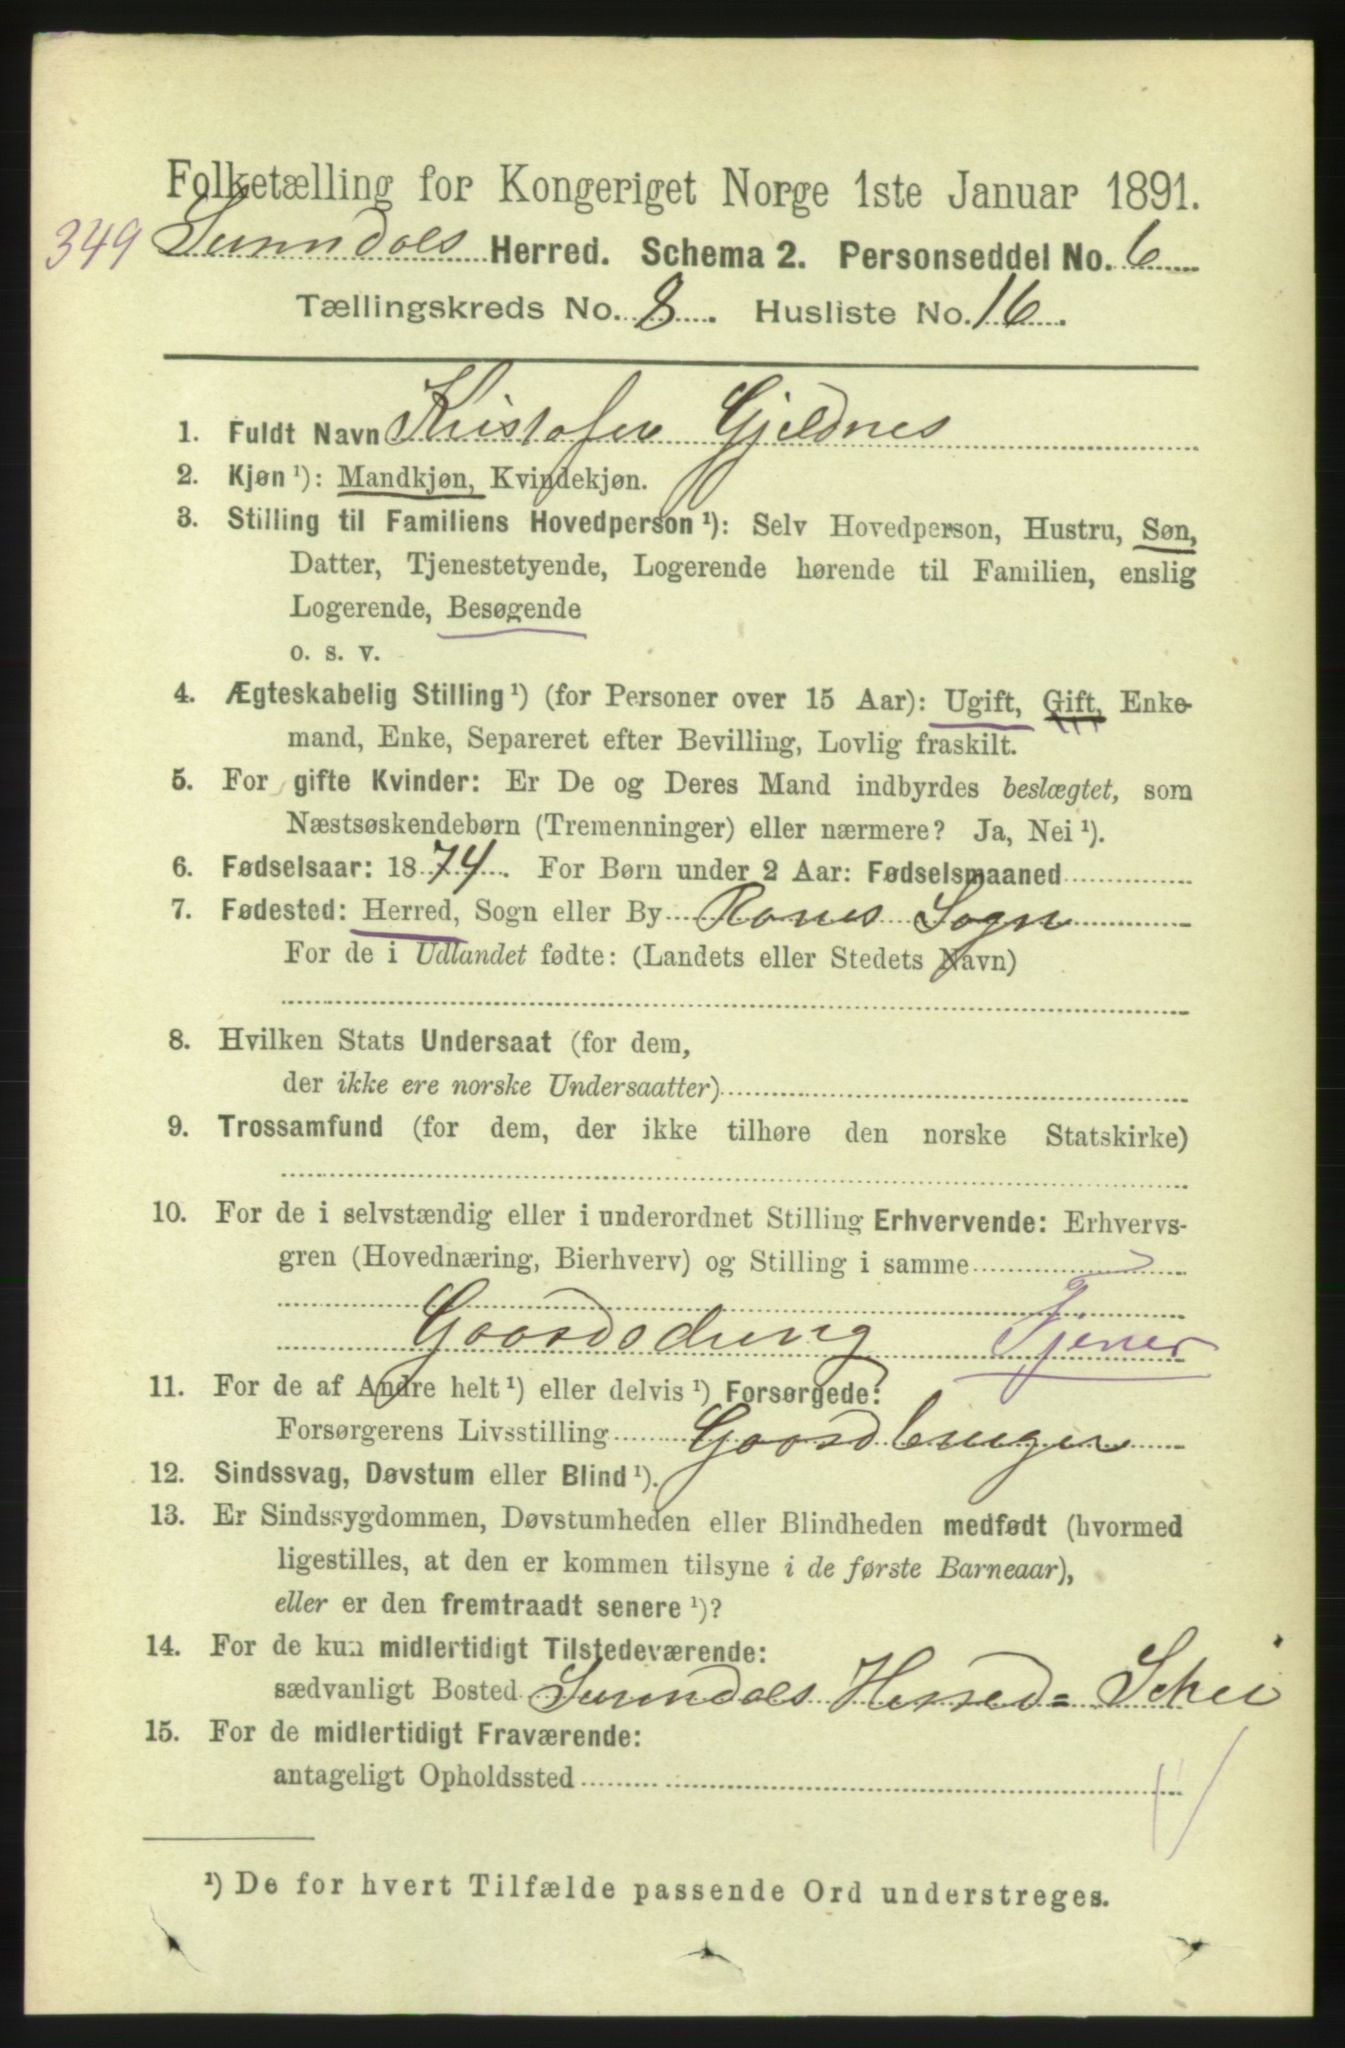 Folketælling for Kongeriget Norge 1ste Januar 1891.
349 Sunndals Herred. Schema 2. Personseddel No. 6
Tællingskreds No. 8. Husliste No. 16.
1. Fuldt Navn Kristofer Gjeldnes
2. Kjøn ¹): Mandkjøn, Kvindekjøn.
3. Stilling til Familiens Hovedperson ¹): Selv Hovedperson, Hustru, Søn,
Datter, Tjenestetyende, Logerende hørende til Familien, enslig
Logerende, Besøgende
o. s. v.
4. Ægteskabelig Stilling ¹) (for Personer over 15 Aar): Ugift, Gift, Enke-
mand, Enke, Separeret efter Bevilling, Lovlig fraskilt.
5. For gifte Kvinder: Er De og Deres Mand indbyrdes beslægtet, som
Næstsøskendebørn (Tremenninger) eller nærmere? Ja, Nei ¹).
6. Fødselsaar: 1874. For Børn under 2 Aar: Fødselsmaaned
7. Fødested: Herred, Sogn eller By Ranes Sogn
For de i Udlandet fødte: (Landets eller Stedets Navn)
8. Hvilken Stats Undersaat (for dem,
der ikke ere norske Undersaatter)
9. Trossamfund (for dem, der ikke tilhøre den norske Statskirke)
10. For de i selvstændig eller i underordnet Stilling Erhvervende: Erhvervs-
gren (Hovednæring, Bierhverv) og Stilling i samme
Gaardsdreng Tjener
11. For de af Andre helt ¹) eller delvis ¹) Forsørgede:
Forsørgerens Livsstilling Gaardbruger
12. Sindssvag, Døvstum eller Blind ¹).
13. Er Sindssygdommen, Døvstumheden eller Blindheden medfødt (hvormed
ligestilles, at den er kommen tilsyne i de første Barneaar),
eller er den fremtraadt senere ¹)?
14. For de kun midlertidigt Tilstedeværende:
sædvanligt Bosted Sunndals Herred = Schei
15. For de midlertidigt Fraværende:
antageligt Opholdssted
¹) De for hvert Tilfælde passende Ord understreges.